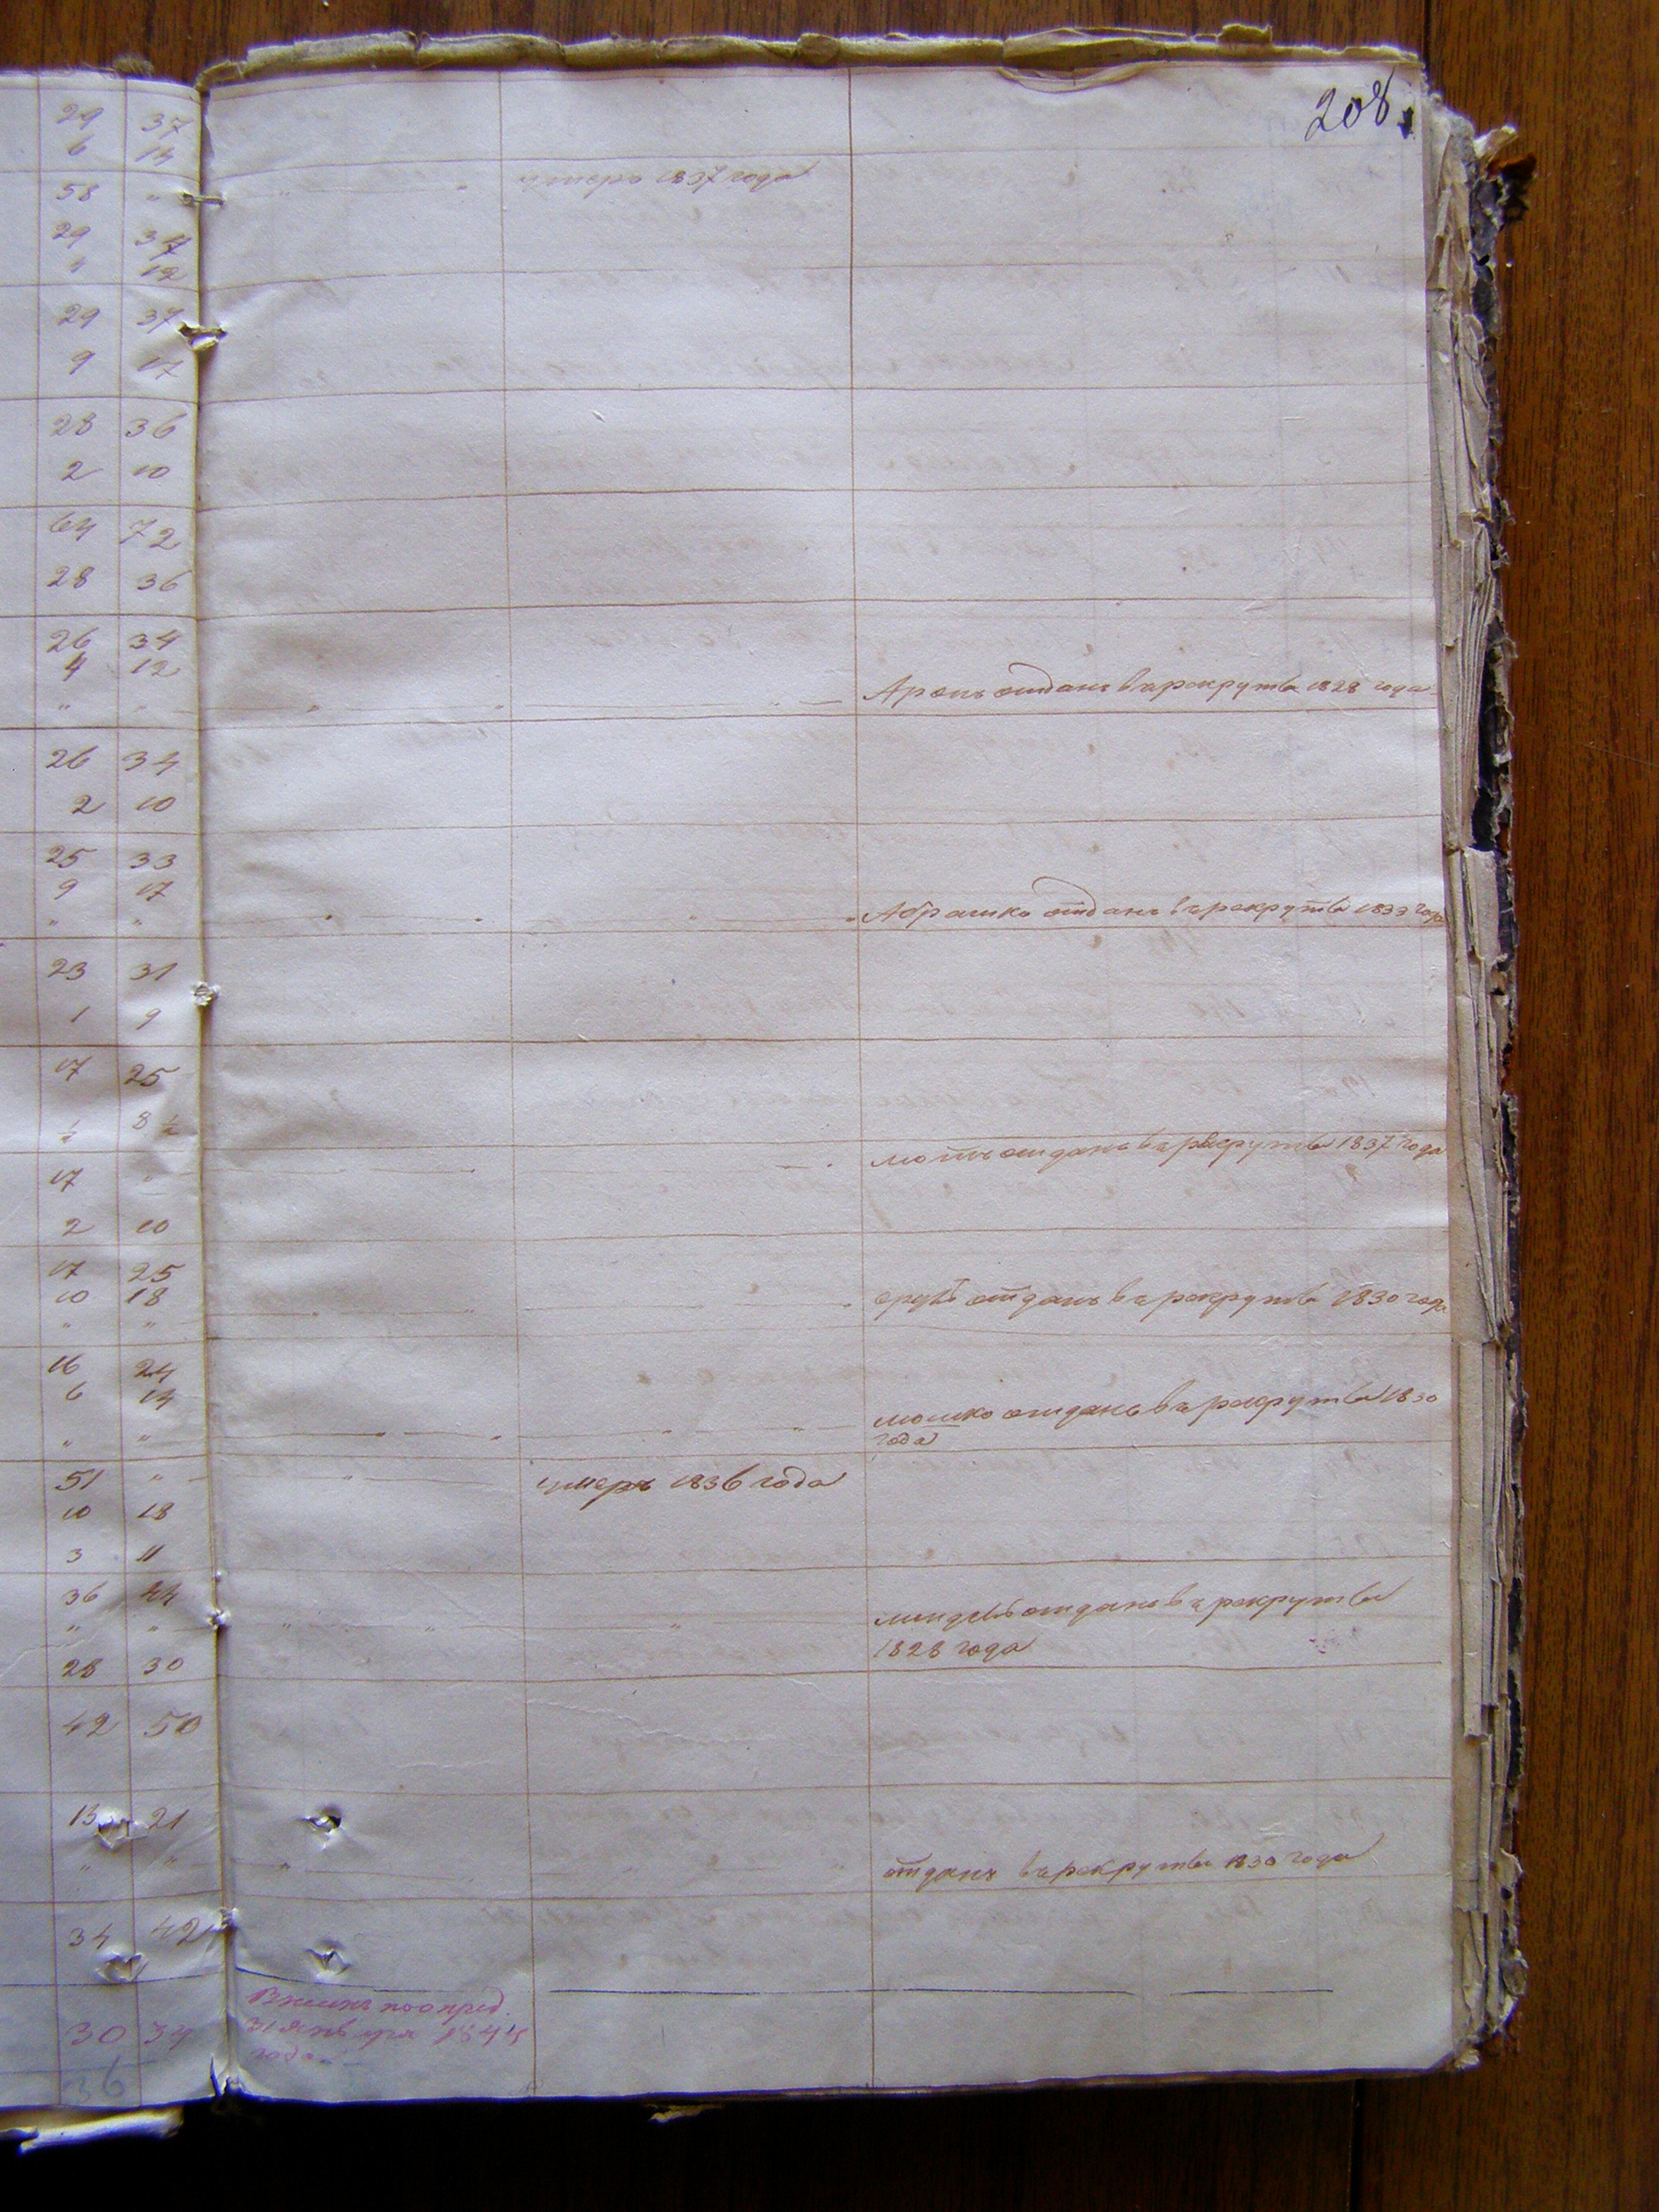 208.
29 37
6 14
58 "
умеръ 1837 года
29 37
4 12
29 37
9 17
28 36
2 10
64 72
28 36
26 34
4 12
" " Аронъ отданъ въ рекруты 1828 года
26 34
2 10
25 33
9 17
" " Абрашко отданъ въ рекруты 1833 года
23 31
1 9
17 25
½ 8 ½
17 " отданъ въ рекруты 1837 года
2 10
17 25
10 18
" " отданъ въ рекруты 1830 года
16 24
6 14
" " мошко отданъ въ рекруты 1830
года
51 " умеръ 1836 года
10 18
3 11
36 44
" " отданъ въ рекруты
28 30 1828 года
42 50
13 21
" " отданъ въ рекруты 1830 года
34 42
30 34 31 января 1844
года
36